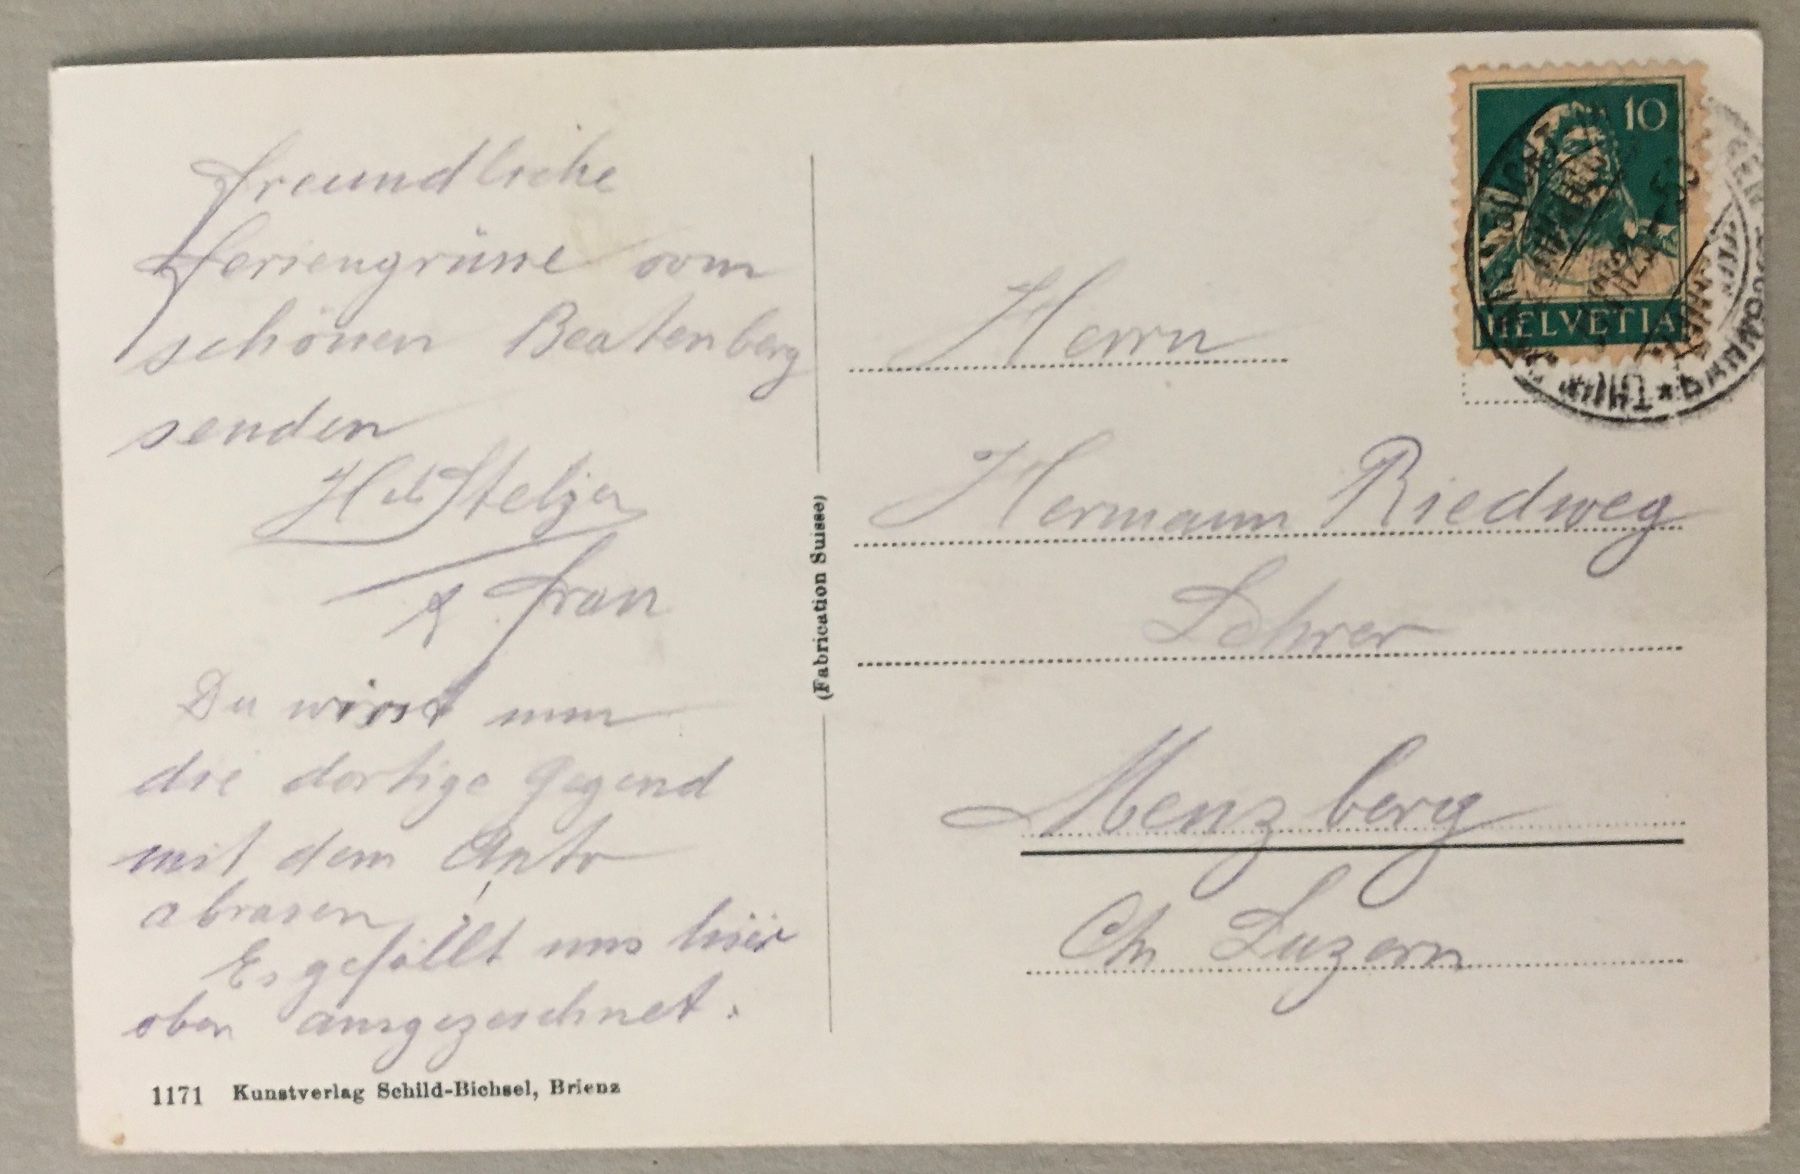 Freundliche
Feriengrüsse vom
schönen Beatenberg
senden
Stelzer
& Frau
Du wirst nun
die dortige Gegend
mit dem Auto
abrasen!
Es gefällt uns hier
oben ausgezeichnet.
1171 Kunstverlag Schild-Bichsel, Brienz
(Fabrication Suisse)
10
HELVETIA
THUN
BAHNPOST
Herrn
Hermann Riedweg
Lehrer
Menzberg
Ct. Luzern